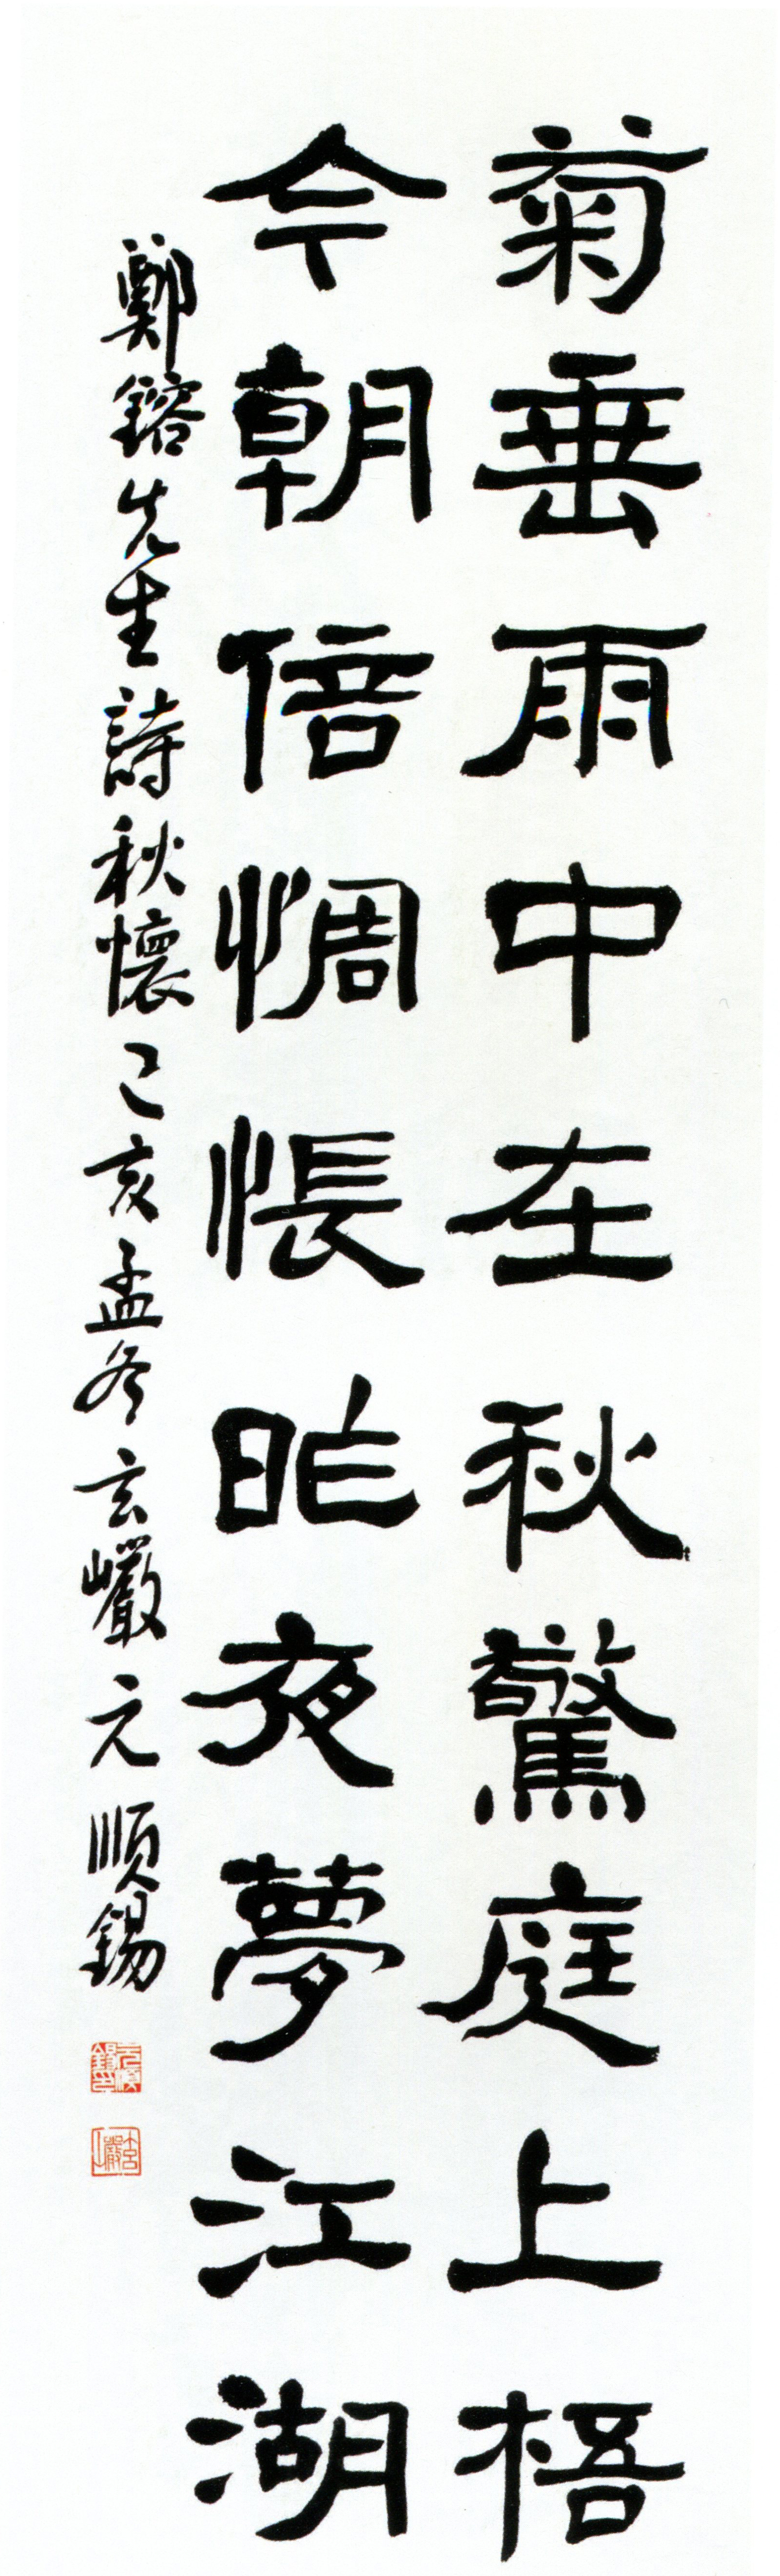 菊垂雨中在秋驚庭上梧
今朝倍惆悵昨夜夢江湖
鄭鎔先生詩秋懷己亥孟冬玄巖元順錫